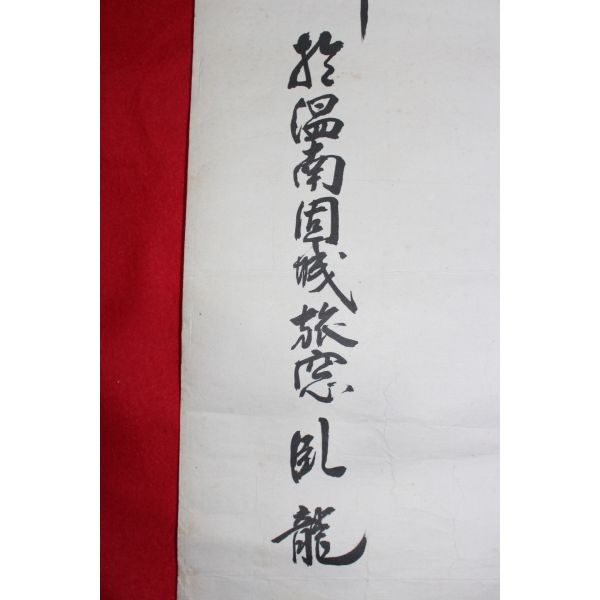 於温南固城旅窓臥龍